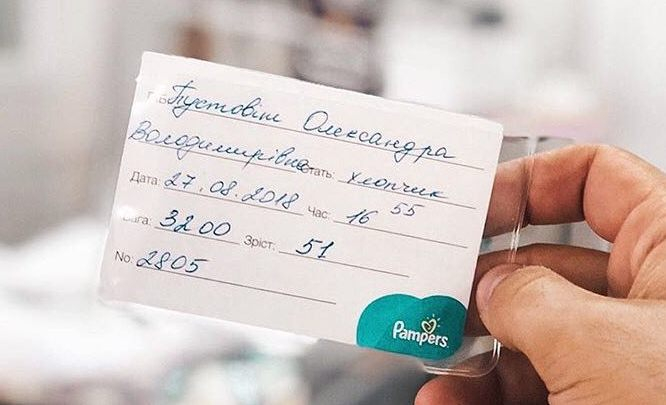 ПІБ Пустовіт Олександра
Володимирівна Стать: хлопчик
Дата: 27.08.2018 Час: 16 55
Вага: 3200 Зріст: 51
No: 2805
Pampers